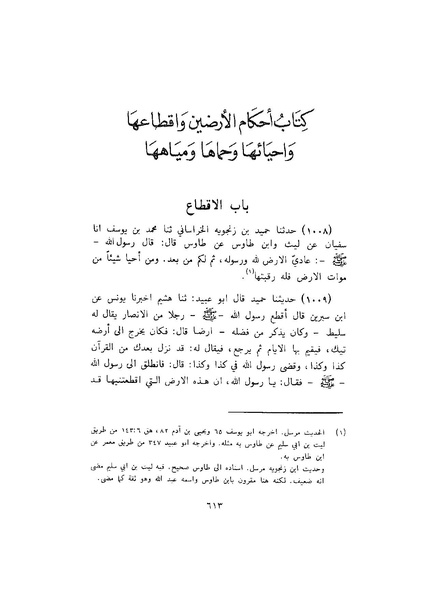 كِتَابُ أحكَام الأرضين وَاقطاعهَا
وَاحيَائهَا وَحماهَا وَميَاههَا
باب الاقطاع
(١٠٠٨) حدثنا حميد بن زنجويه الخراساني ثنا محمد بن يوسف انا
سفيان عن ليث وابن طاوس عن طاوس قال: قال رسول الله -
ﷺ -: عاديّ الارض لله ورسوله، ثم لكم من بعد. ومن أحيا شيئاً من
موات الارض فله رقبتها(١).
(١٠٠٩) حدثنا حميد قال ابو عبيد: ثنا هشيم اخبرنا يونس عن
ابن سيرين قال أقطع رسول الله - ﷺ - رجلا من الانصار يقال له
سليط - وكان يذكر من فضله - ارضا قال: فكان يخرج الى أرضه
تيك، فيقيم بها الايام ثم يرجع، فيقال له: قد نزل بعدك من القرآن
كذا وكذا، وقضى رسول الله في كذا وكذا: قال: فانطلق الى رسول الله
- ﷺ - فقال: يا رسول الله، ان هذه الارض التي اقطعتنيها قد
(١) الحديث مرسل. اخرجه ابو يوسف ٦٥ ويحيى بن آدم ٨٢، هق ٦: ١٤٣ من طريق
ليث بن ابي سليم عن طاوس به مثله. واخرجه ابو عبيد ٣٤٧ من طريق معمر عن
ابن طاوس به.
وحديث ابن زنجويه مرسل. اسناده الى طاوس صحيح. فيه ليث بن ابي سليم مضى
انه ضعيف. لكنه هنا مقرون بابن طاوس واسمه عبد الله وهو ثقة كما مضى.
٦١٣